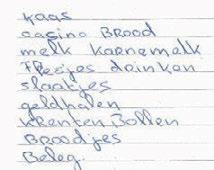 kaas
casino Brood
melk karnemelk
Flesjes drinken
slaatjes
geldhalen
krenten Bollen
Broodjes
Beleg.